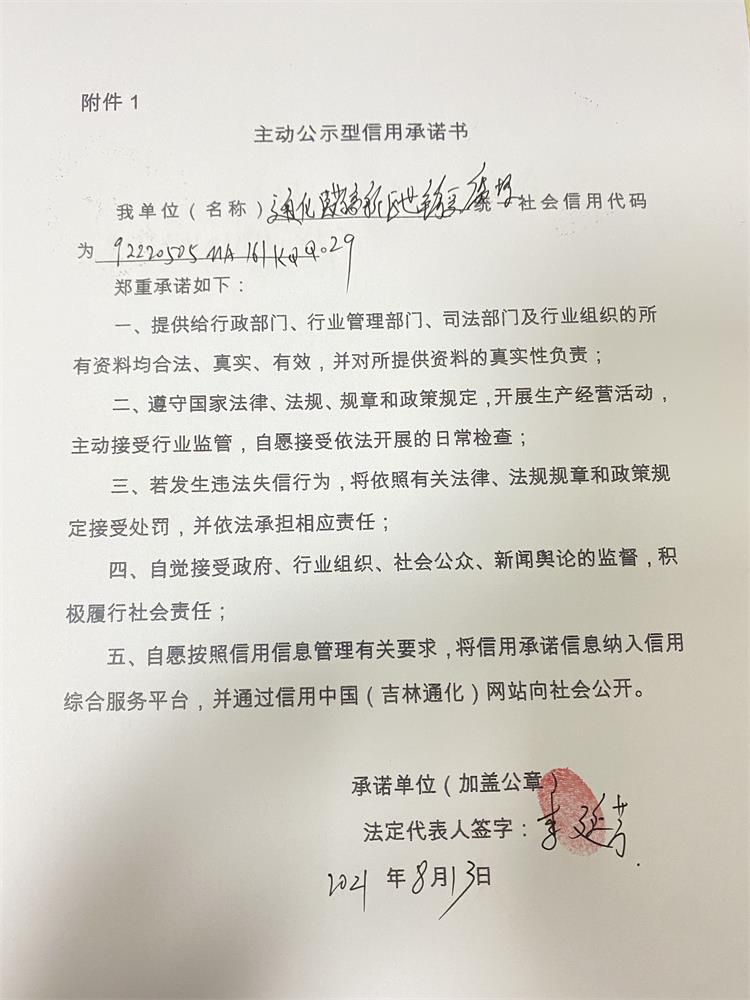 附件 1
主动公示型信用承诺书
我单位（名称）通化 高新区 统一社会信用代码
为 92220505MA161KQQ29
郑重承诺如下：
一、提供给行政部门、行业管理部门、司法部门及行业组织的所
有资料均合法、真实、有效，并对所提供资料的真实性负责；
二、遵守国家法律、法规、规章和政策规定，开展生产经营活动，
主动接受行业监管，自愿接受依法开展的日常检查；
三、若发生违法失信行为，将依照有关法律、法规规章和政策规
定接受处罚，并依法承担相应责任；
四、自觉接受政府、行业组织、社会公众、新闻舆论的监督，积
极履行社会责任；
五、自愿按照信用信息管理有关要求，将信用承诺信息纳入信用
综合服务平台，并通过信用中国（吉林通化）网站向社会公开。
承诺单位（加盖公章）
法定代表人签字：李延芳
2021 年 8月13日